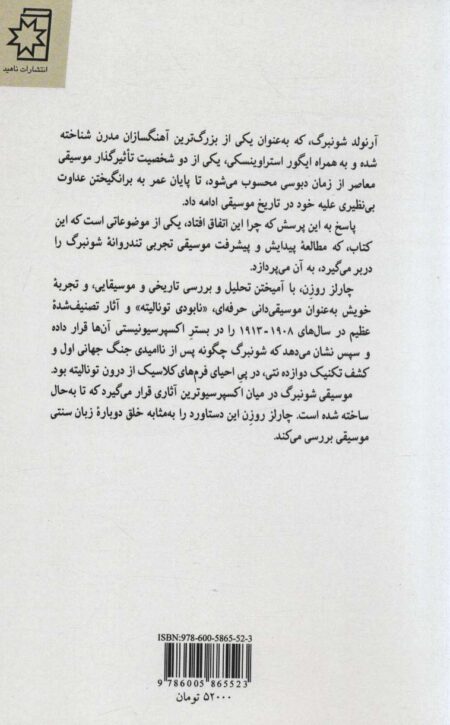 انتشارات ناهید
آرنولد شونبرگ، که به‌عنوان یکی از بزرگ‌ترین آهنگسازان مدرن شناخته
شده و به همراه ایگور استراوینسکی، یکی از دو شخصیت تأثیرگذار موسیقی
معاصر از زمان دبوسی محسوب می‌شود، تا پایان عمر به برانگیختن عداوت
بی‌نظیری علیه خود در تاریخ موسیقی ادامه داد.
پاسخ به این پرسش که چرا این اتفاق افتاد، یکی از موضوعاتی است که این
کتاب، که مطالعهٔ پیدایش و پیشرفت موسیقی تجربی تندروانهٔ شونبرگ را
دربر می‌گیرد، به آن می‌پردازد.
چارلز روزن، با آمیختن تحلیل و بررسی تاریخی و موسیقایی، و تجربهٔ
خویش به‌عنوان موسیقی‌دانی حرفه‌ای، «نابودی تونالیته» و آثار تصنیف‌شدهٔ
عظیم در سال‌های ۱۹۰۸-۱۹۱۳ را در بستر اکسپرسیونیستی آن‌ها قرار داده
و سپس نشان می‌دهد که شونبرگ چگونه پس از ناامیدی جنگ جهانی اول و
کشف تکنیک دوازده نتی، در پیِ احیای فرم‌های کلاسیک از درون تونالیته بود.
موسیقی شونبرگ در میان اکسپرسیوترین آثاری قرار می‌گیرد که تا به‌حال
ساخته شده است. چارلز روزِن این دستاورد را به‌مثابه خلق دوبارهٔ زبان سنتی
موسیقی بررسی می‌کند.
ISBN:978-600-5865-52-3
9 786005 865523
۵۲۰۰۰ تومان